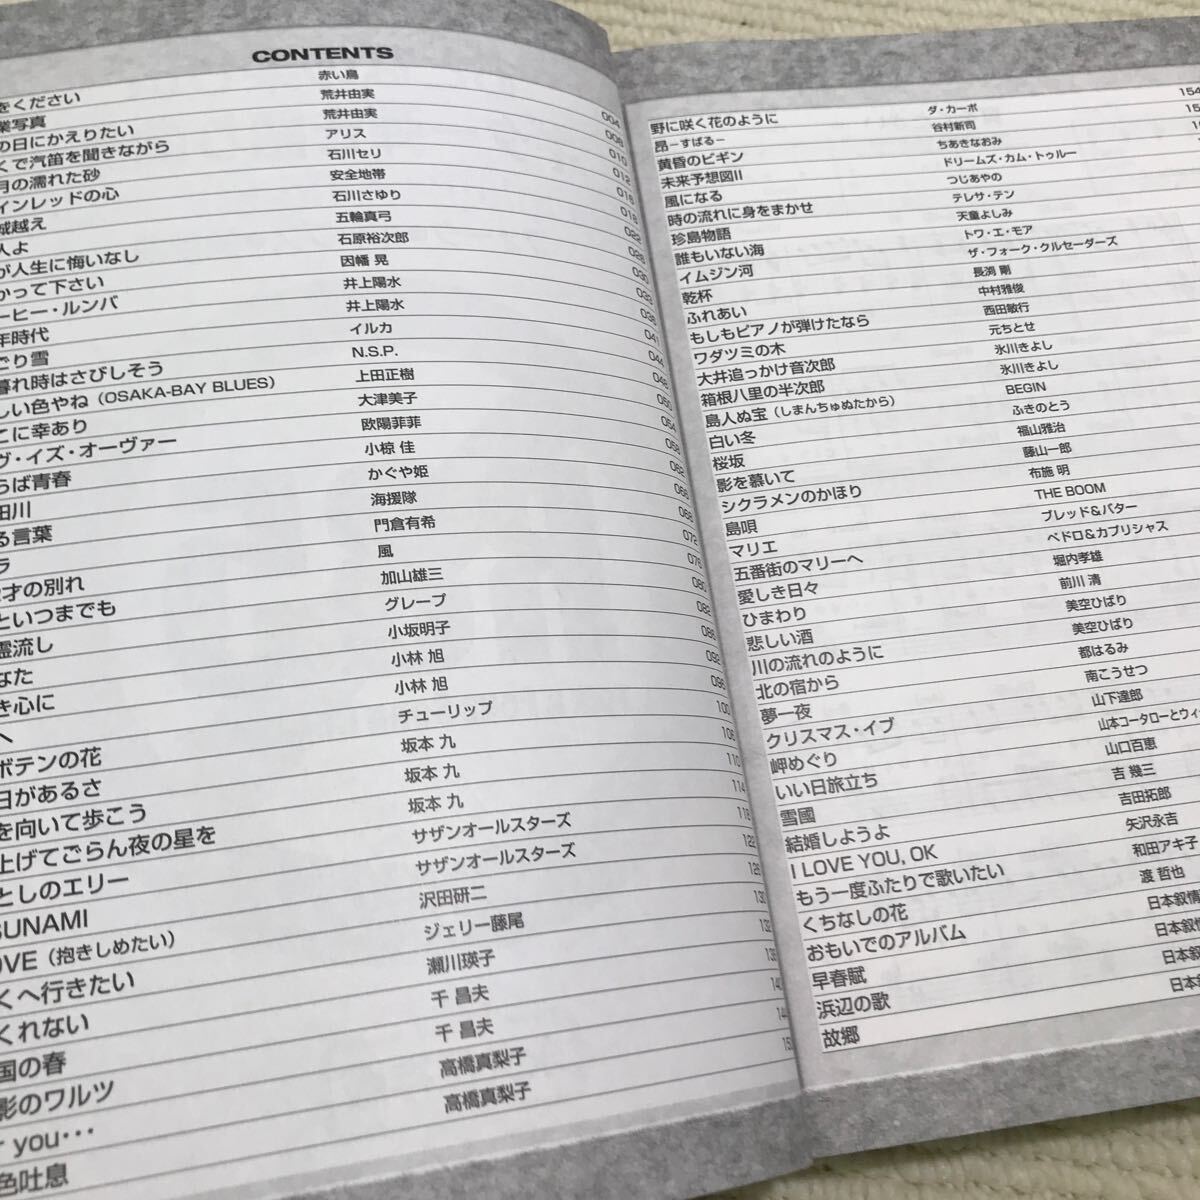 CONTENTS
をください 赤い鳥 004
業写真 荒井由実 006
の日にかえりたい 荒井由実 010
くで汽笛を聞きながら アリス 012
月の濡れた砂 石川セリ 016
インレッドの心 安全地帯 018
城越え 石川さゆり 022
人よ 五輪真弓 028
が人生に悔いなし 石原裕次郎 030
かって下さい 因幡 晃 033
ーヒー・ルンバ 井上陽水 038
年時代 井上陽水 041
ごり雪 イルカ 044
暮れ時はさびしそう N.S.P. 048
しい色やね（OSAKA-BAY BLUES） 上田正樹 050
こに幸あり 大津美子 054
ヴ・イズ・オーヴァー 欧陽菲菲 058
らば青春 小椋 佳 062
田川 かぐや姫 066
る言葉 海援隊 068
ラ 門倉有希 072
才の別れ 風 076
といつまでも 加山雄三 080
霊流し グレープ 082
なた 小坂明子 086
き心に 小林 旭 092
へ 小林 旭 096
ボテンの花 チューリップ 100
日があるさ 坂本 九 106
を向いて歩こう 坂本 九 110
上げてごらん夜の星を 坂本 九 114
としのエリー サザンオールスターズ 118
SUNAMI サザンオールスターズ 122
OVE（抱きしめたい） 沢田研二 126
くへ行きたい ジェリー藤尾 130
くれない 瀬川瑛子 132
国の春 千 昌夫 136
影のワルツ 千 昌夫 14
you･･･ 高橋真梨子 14
色吐息 高橋真梨子 15
野に咲く花のように ダ・カーポ 154
昴－すばる－ 谷村新司 15
黄昏のビギン ちあきなおみ 1
未来予想図II ドリームズ・カム・トゥルー
風になる つじあやの
時の流れに身をまかせ テレサ・テン
珍島物語 天童よしみ
誰もいない海 トワ・エ・モア
イムジン河 ザ・フォーク・クルセーダーズ
乾杯 長渕 剛
ふれあい 中村雅俊
もしもピアノが弾けたなら 西田敏行
ワダツミの木 元ちとせ
大井追っかけ音次郎 氷川きよし
箱根八里の半次郎 氷川きよし
島人ぬ宝（しまんちゅぬたから） BEGIN
白い冬 ふきのとう
桜坂 福山雅治
影を慕いて 藤山一郎
シクラメンのかほり 布施 明
島唄 THE BOOM
マリエ ブレッド&バター
五番街のマリーへ ペドロ&カプリシャス
愛しき日々 堀内孝雄
ひまわり 前川 清
悲しい酒 美空ひばり
川の流れのように 美空ひばり
北の宿から 都はるみ
夢一夜 南こうせつ
クリスマス・イブ 山下達郎
岬めぐり 山本コータローとウィ
いい日旅立ち 山口百恵
雪國 吉 幾三
結婚しようよ 吉田拓郎
I LOVE YOU, OK 矢沢永吉
もう一度ふたりで歌いたい 和田アキ子
くちなしの花 渡 哲也
おもいでのアルバム 日本叙情
早春賦 日本叙情
浜辺の歌 日本叙
故郷 日本叙